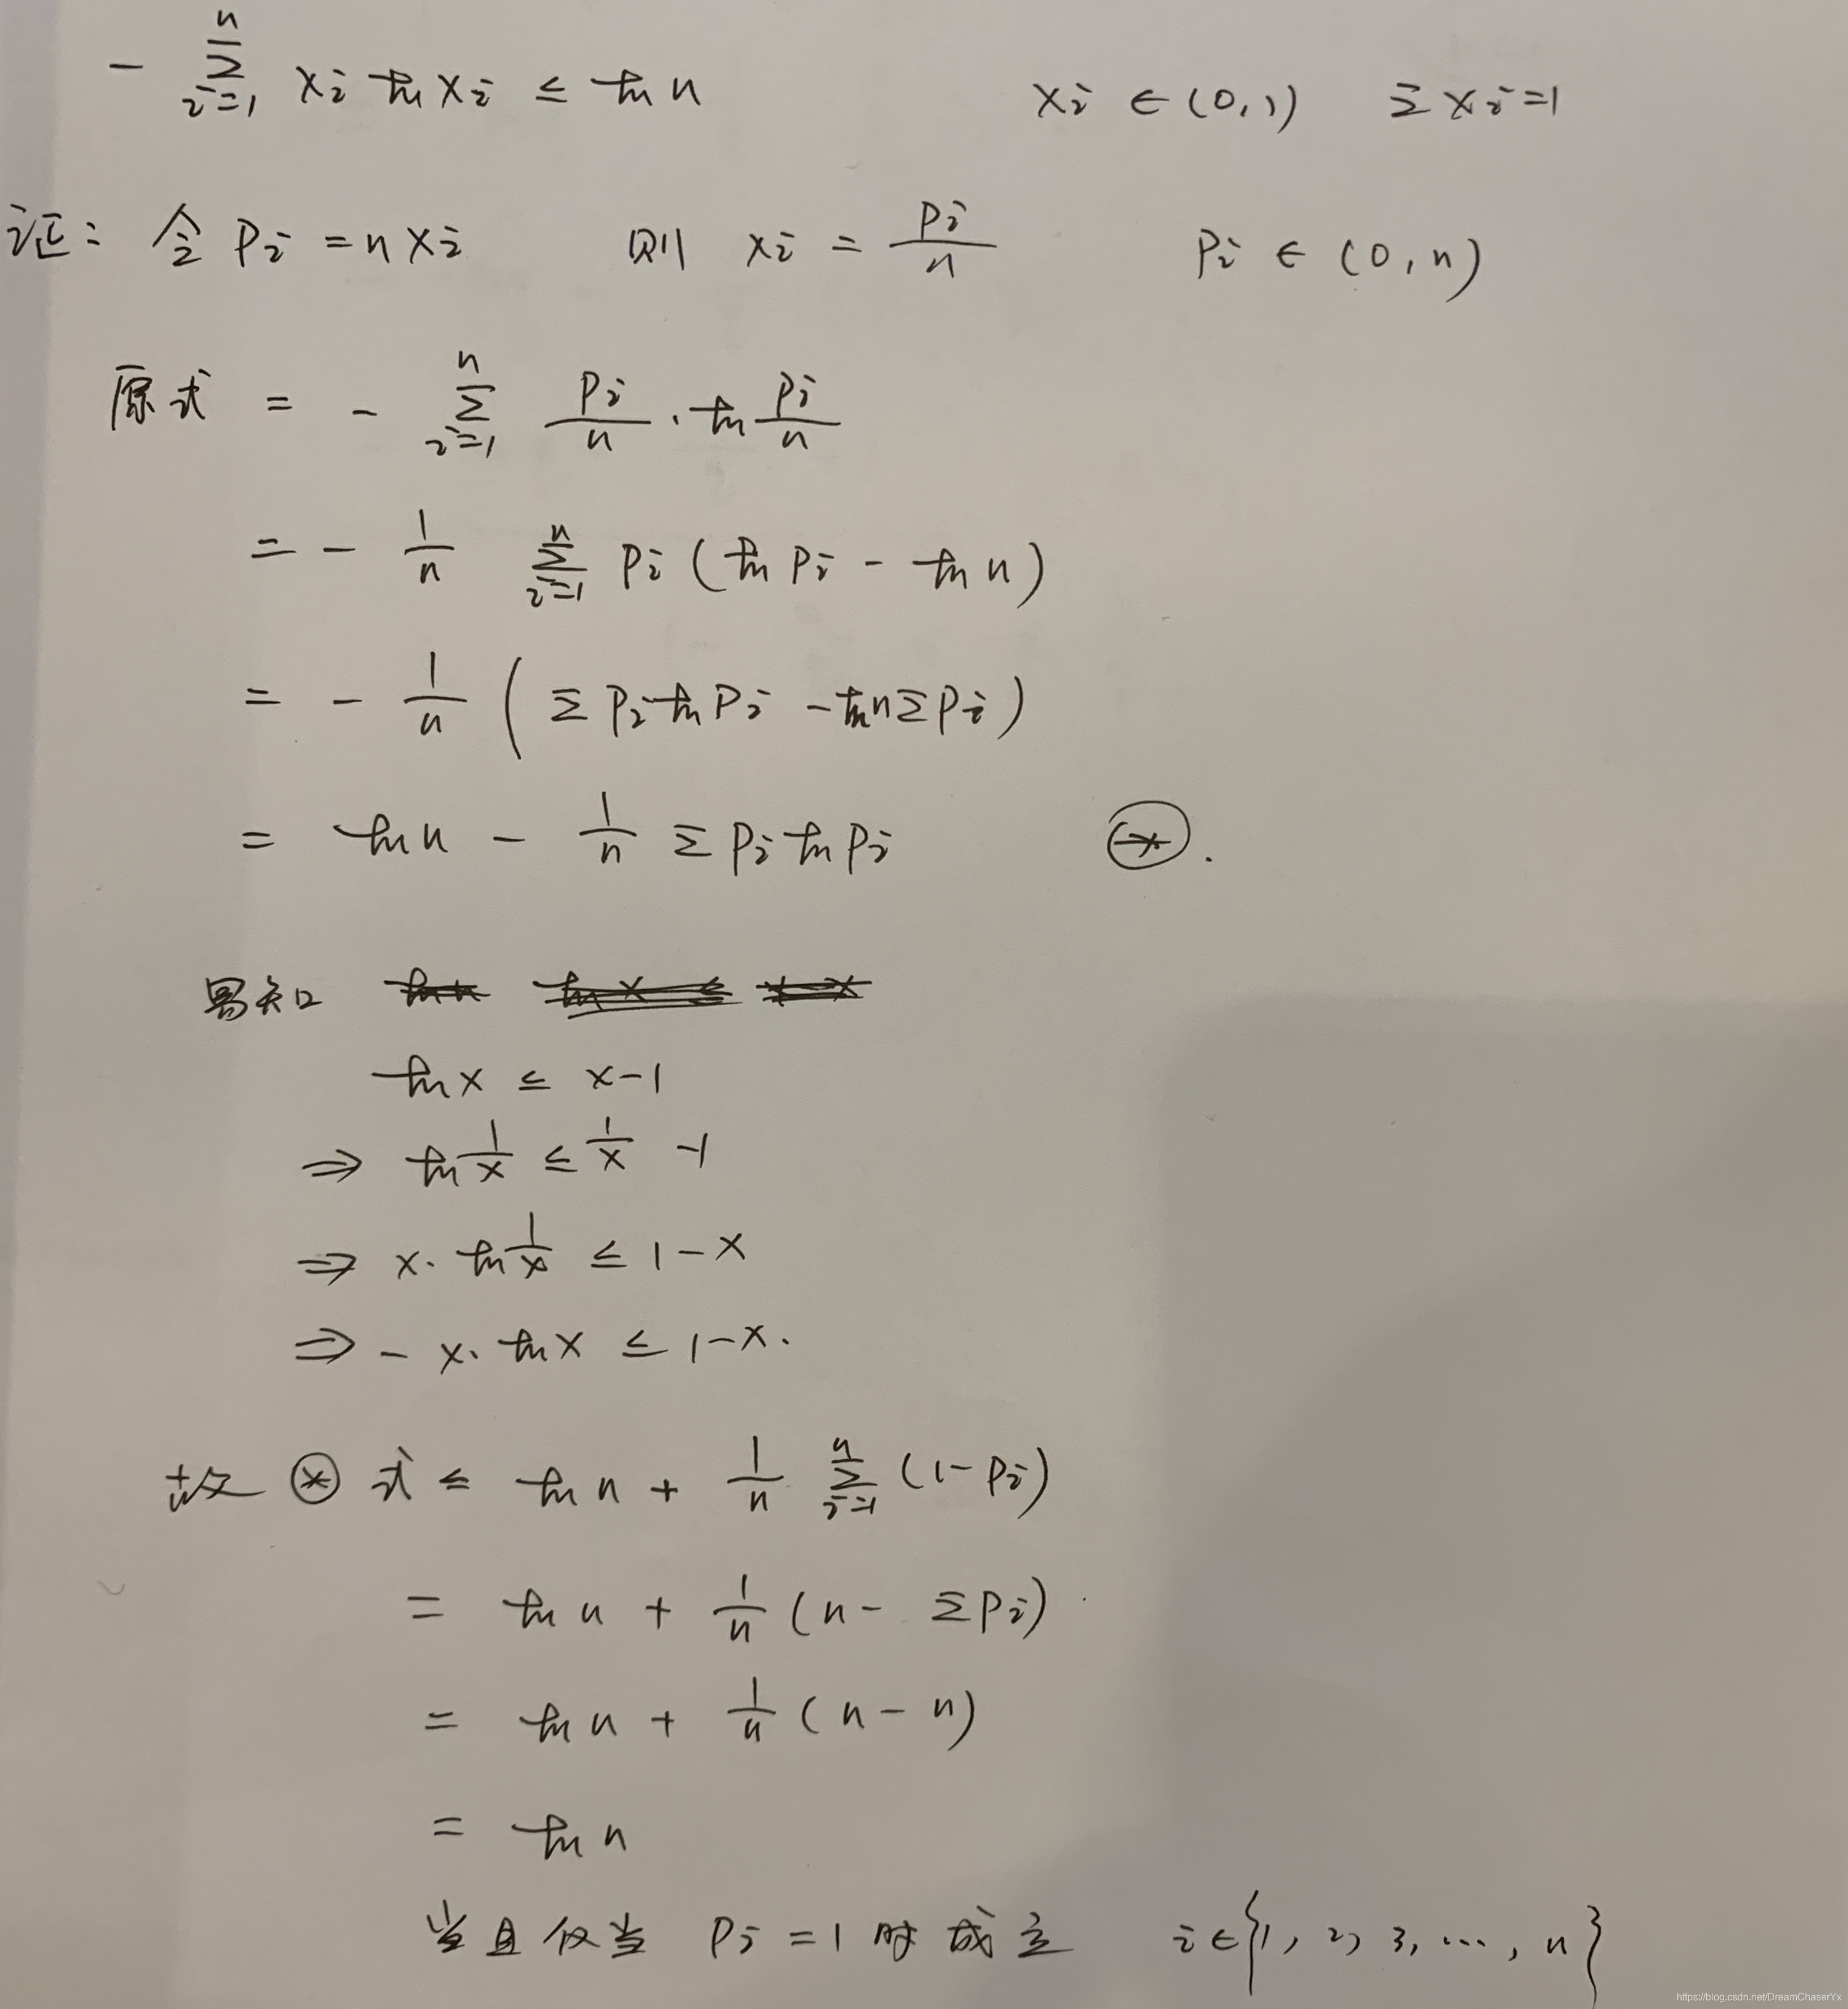 - ∑_{i=1}^{n} xi ln xi ≤ ln n    xi ∈ (0,1)    ∑xi=1
证: 令 Pi = nxi    则 xi = Pi/n    Pi ∈ (0, n)
原式 = - ∑_{i=1}^{n} Pi/n · ln Pi/n
= - 1/n ∑_{i=1}^{n} Pi (ln Pi - ln n)
= - 1/n (∑ Pi ln Pi - ln n ∑ Pi)
= ln n - 1/n ∑ Pi ln Pi    ⊛.
易知
ln x ≤ x-1
⇒ ln 1/x ≤ 1/x -1
⇒ x· ln 1/x ≤ 1-x
⇒ - x· ln x ≤ 1-x.
故 ⊛ 式 ≤ ln n + 1/n ∑_{i=1}^{n} (1-Pi)
= ln n + 1/n (n - ∑Pi)
= ln n + 1/n (n - n)
= ln n
当且仅当 Pi = 1 时成立    i∈{1, 2, 3, ..., n}
https://blog.csdn.net/DreamChaserYx